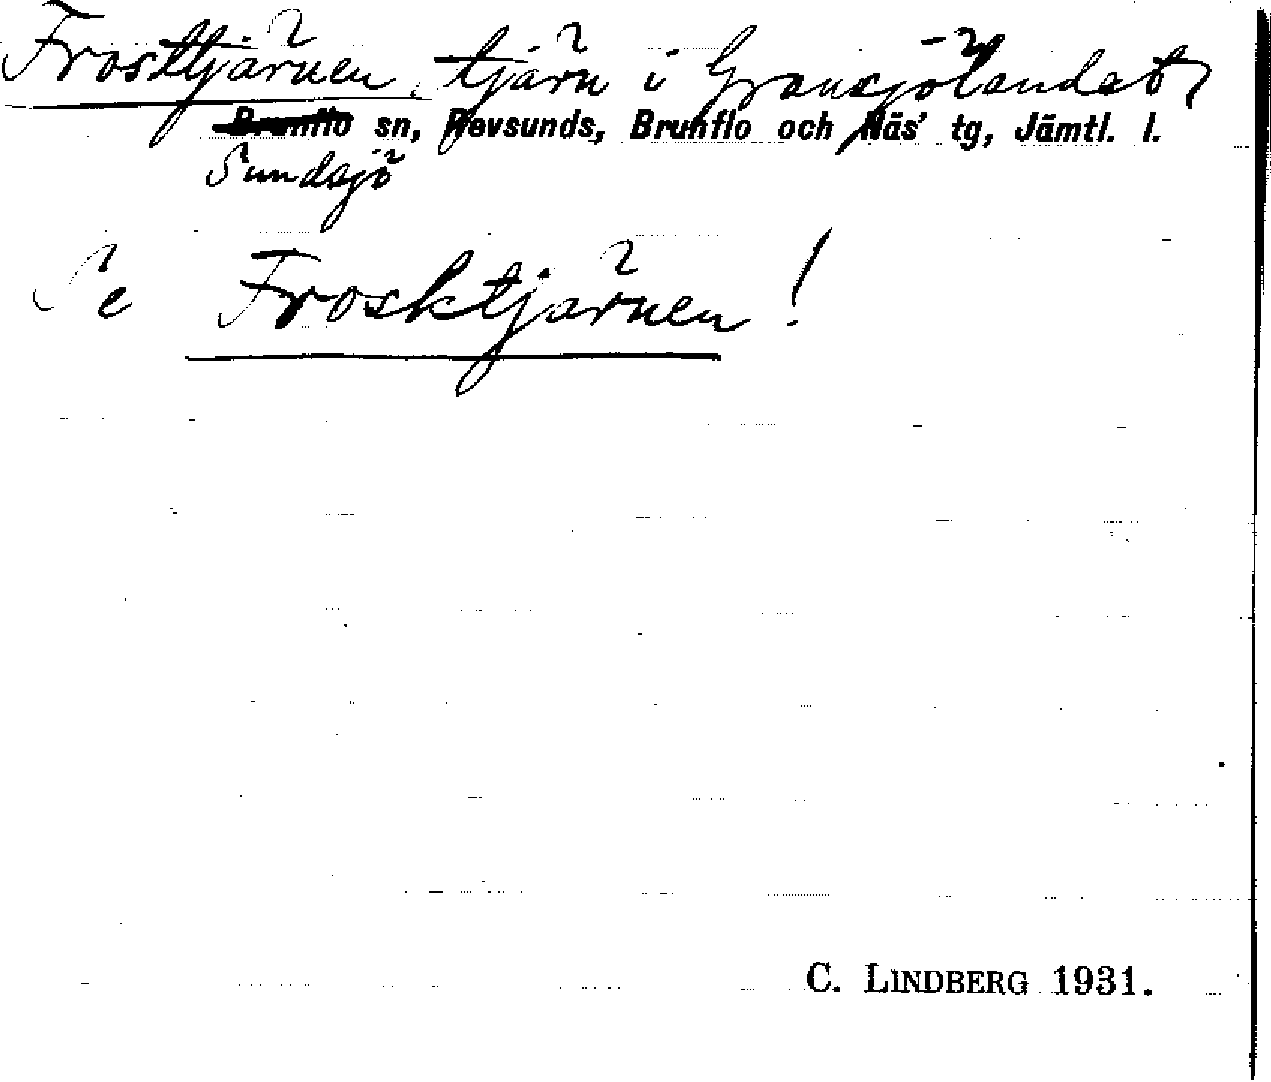 Frosttjärnen, tjärn i Gransjölandet,
Brunflo sn, Revsunds, Brunflo och Näs' tg, Jämtl. l.
Sundsjö
Se Frosktjärnen!
C. LINDBERG 1931.